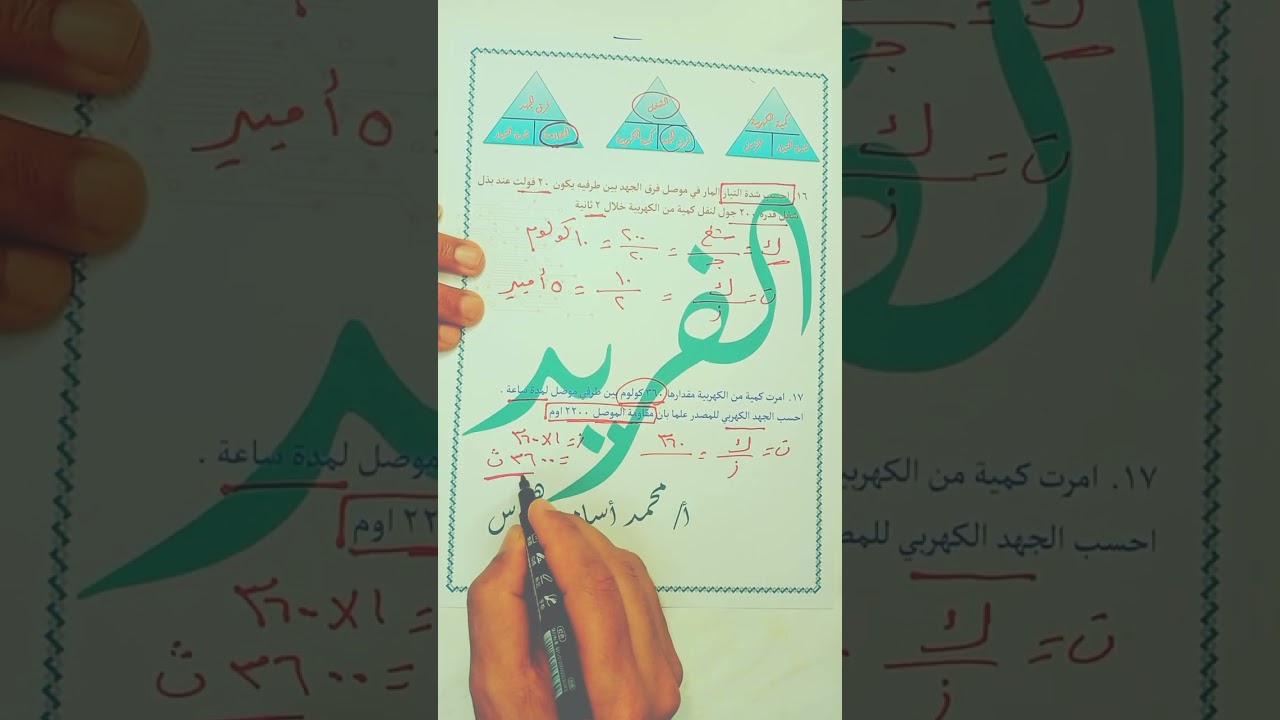 فرق الجهد
شدة التيار
المقاومة
الشغل
كمية الكهربية
فرق الجهد
كمية الكهربية
شدة التيار
الزمن
١٦. احسب شدة التيار المار في موصل فرق الجهد بين طرفيه يكون ٢٠ فولت عند بذل
شغل قدره ٢٠٠ جول لنقل كمية من الكهربية خلال ٢ ثانية
ك = شغ / جـ = ٢٠٠ / ٢٠ = ١٠ كولوم
ت = ك / ز = ١٠ / ٢ = ٥ أمبير
الفريد
١٧. امرت كمية من الكهربية مقدارها ٣٦٠ كولوم بين طرفي موصل لمدة ساعة .
احسب الجهد الكهربي للمصدر علما بان مقاومة الموصل ٢٢٠٠ اوم
ت = ك / ز = ٣٦٠
ز = ١ × ٣٦٠٠
= ٣٦٠٠ ث
أ/ محمد